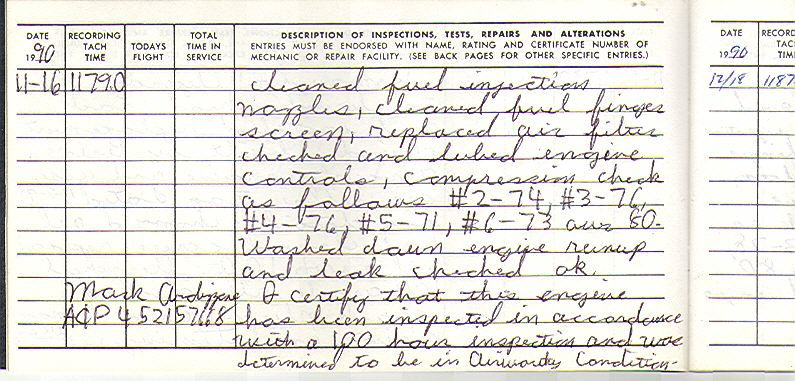 DATE
1990
RECORDING
TACH
TIME
TODAYS
FLIGHT
TOTAL
TIME IN
SERVICE
DESCRIPTION OF INSPECTIONS, TESTS, REPAIRS AND ALTERATIONS
ENTRIES MUST BE ENDORSED WITH NAME, RATING AND CERTIFICATE NUMBER OF
MECHANIC OR REPAIR FACILITY. (SEE BACK PAGES FOR OTHER SPECIFIC ENTRIES.)
11-16 1179.0 cleaned fuel injection
nozzles, cleaned fuel finger
screen, replaced air filter
checked and lubed engine
controls, compression check
as follows #2-74, #3-76,
#4-76, #5-71, #6-73 over 80.
Washed down engine runup
and leak checked ok.
Mark I certify that this engine
A&P has been inspected in accordance
with a 100 hour inspection and was
determined to be in Airworthy Condition.
DATE
1990
RECORD
TACH
TIME
12/18 1187